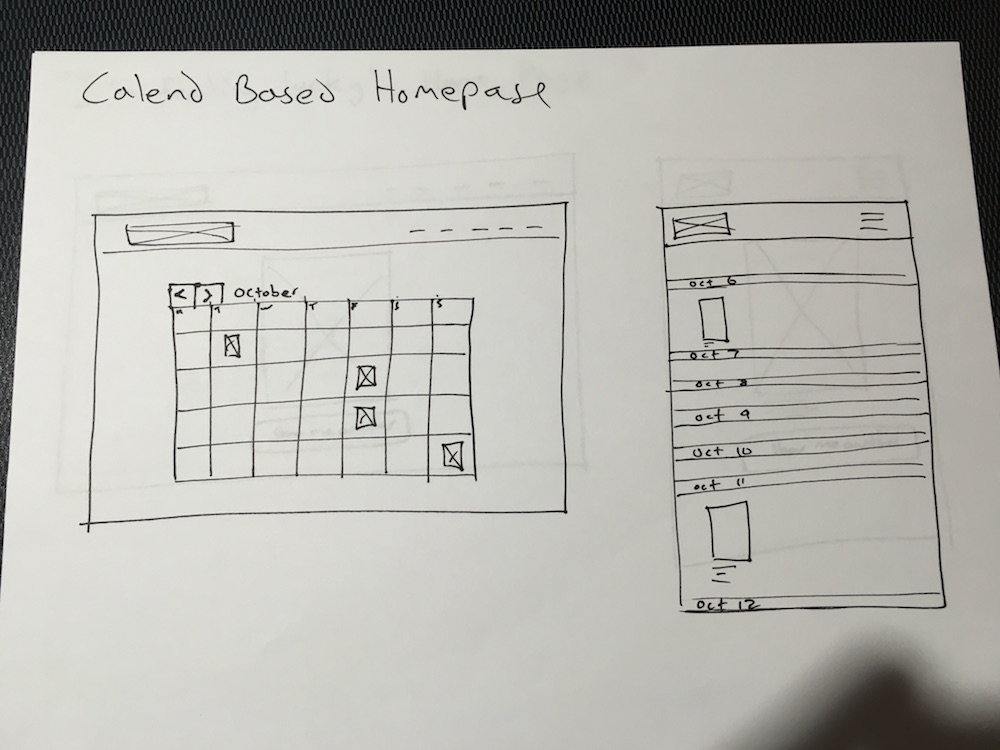 Calend Based Homepage
< > October
M T W T F S S
Oct 6
Oct 7
Oct 8
Oct 9
Oct 10
Oct 11
Oct 12